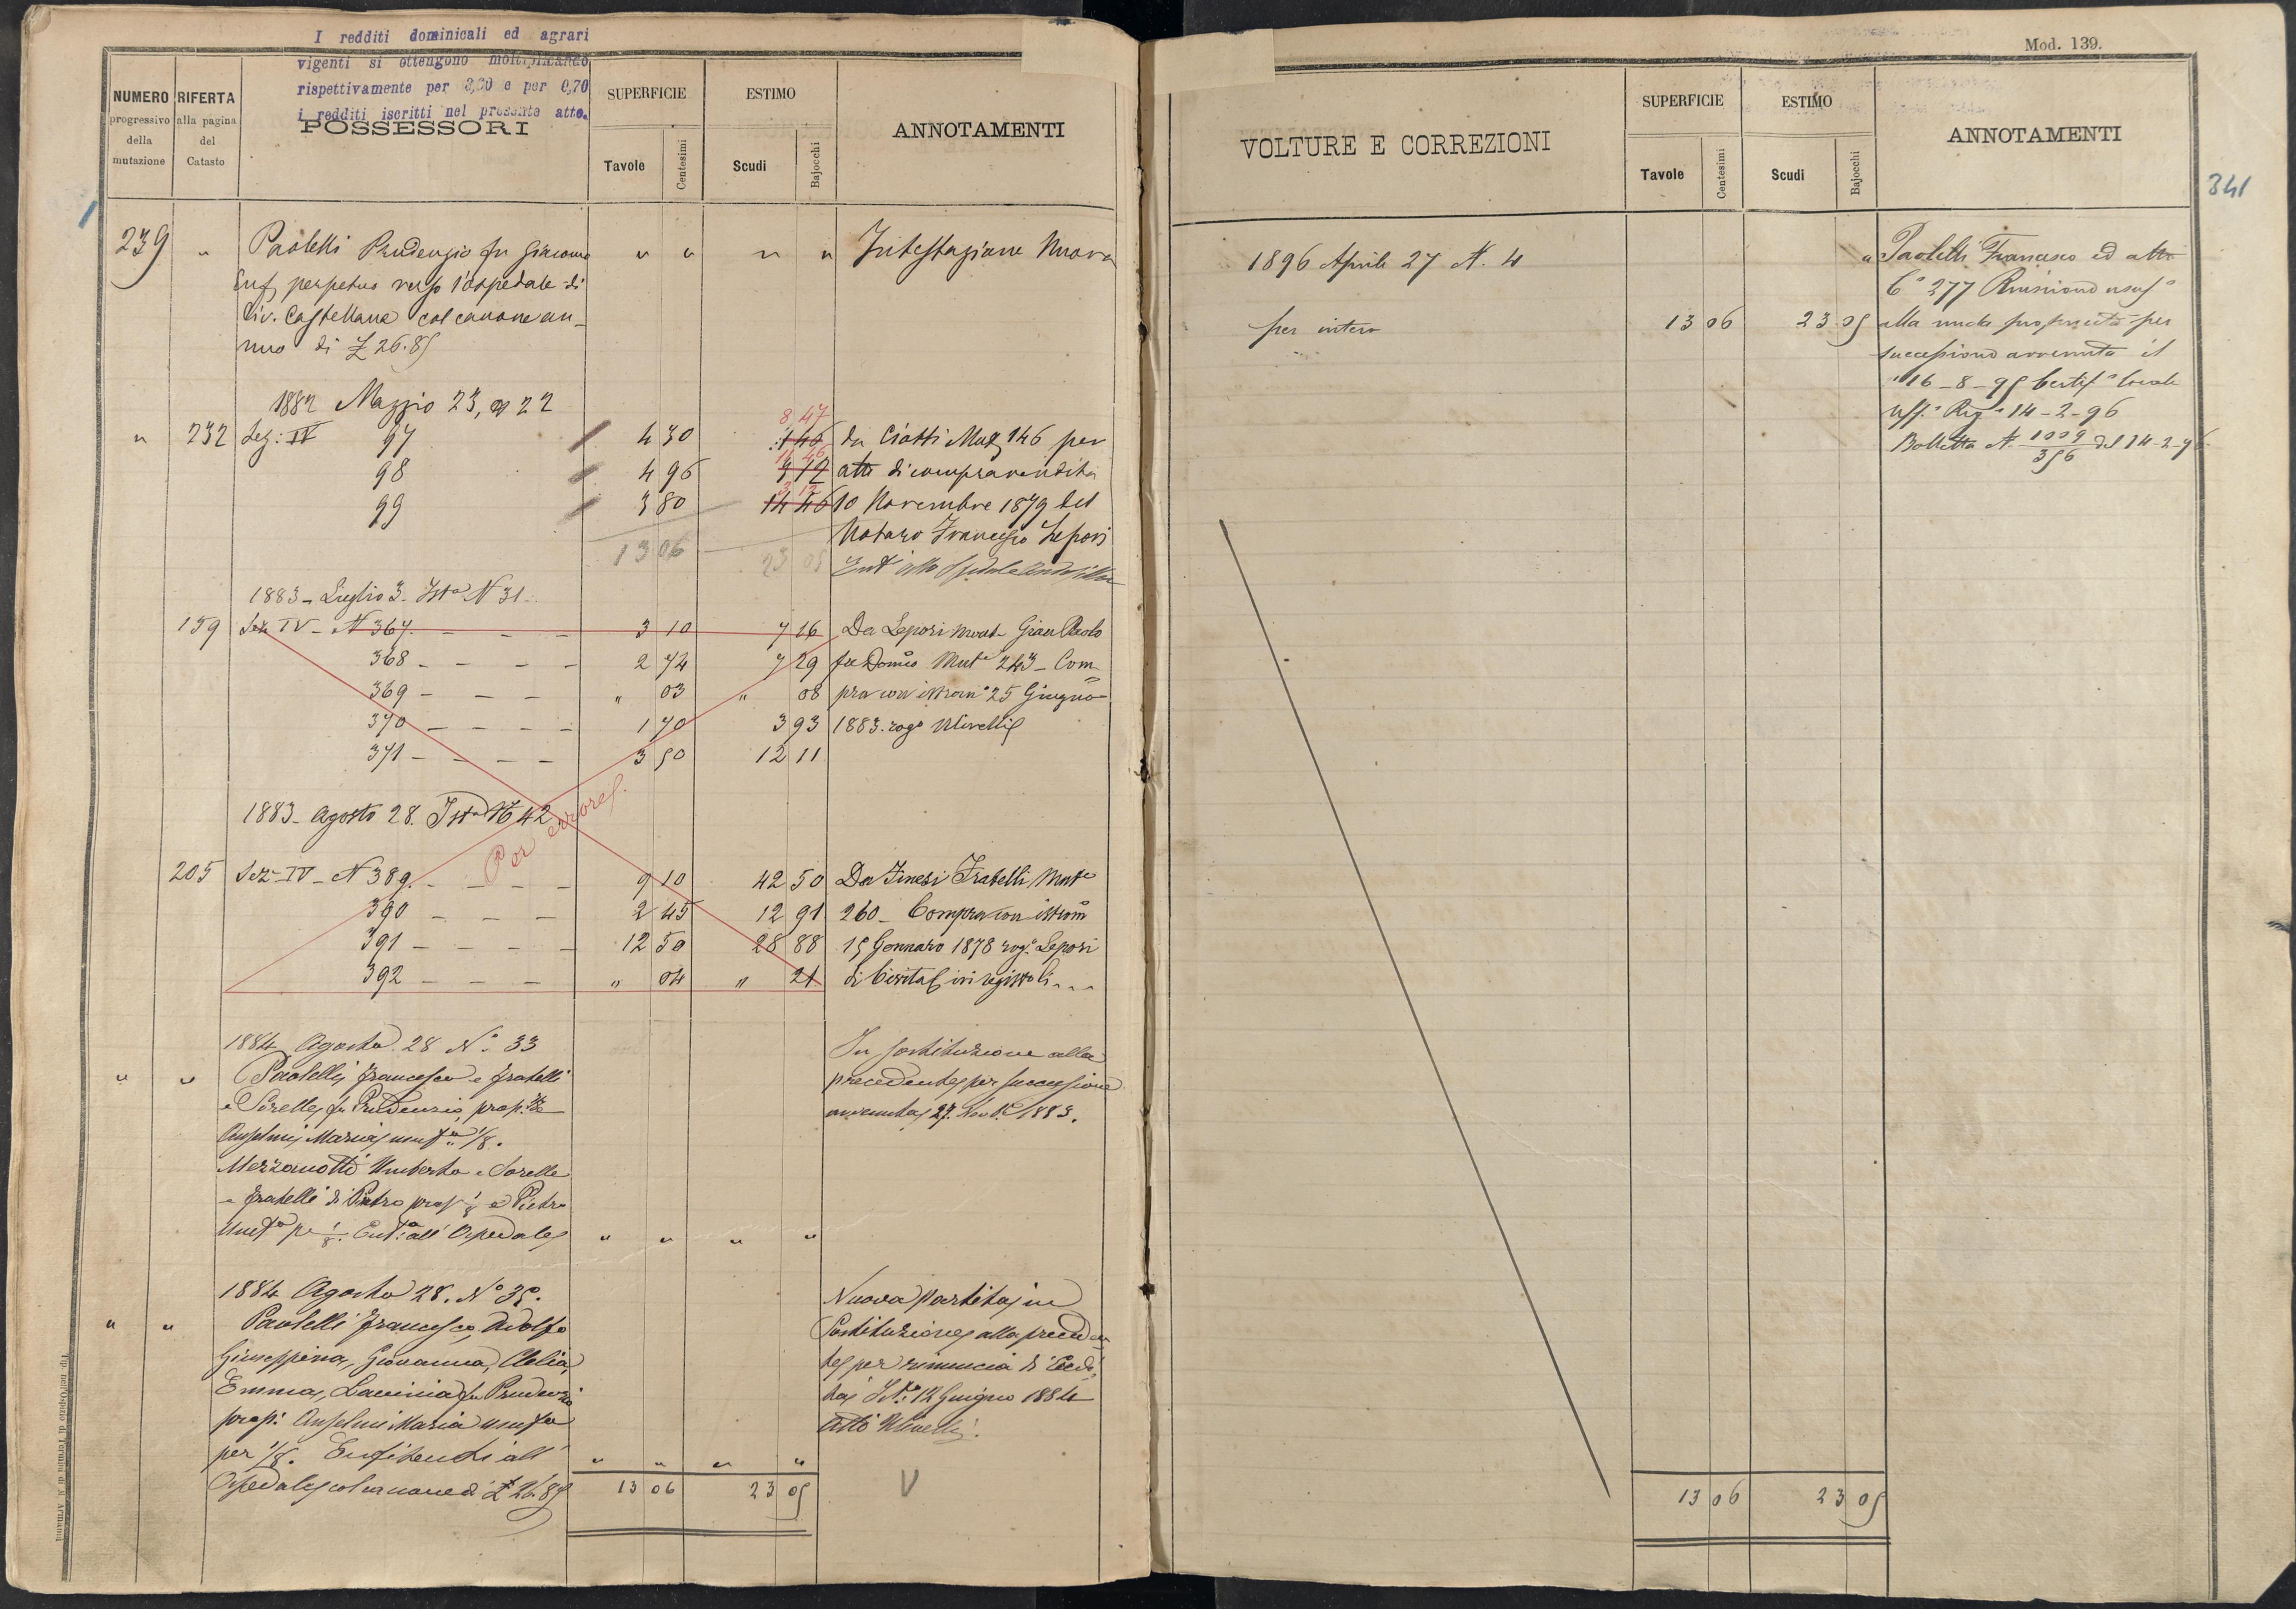 I redditi dominicali ed agrari
vigenti si ottengono moltiplicando
rispettivamente per 3,60 e per 0,70
i redditi iscritti nel presente atto.
NUMERO progressivo della mutazione
RIFERTA alla pagina del Catasto
POSSESSORI
SUPERFICIE
Tavole
Centesimi
ESTIMO
Scudi
Bajocchi
ANNOTAMENTI
239 " Paolelli Prudenzio fu Giacomo " " " " Intestazione Nuova
Enf. perpetuo verso l'ospedale di
Civ. Castellana col canone an-
nuo di £ 26.85
1882 Maggio 23, N 22
8,47
" 232 Sez: IV 97 4 30 1 46 da Ciotti Mut 146 per
11 46
98 4 96 9 12 atto di compravendita
3 12
99 3 80 14 46 10 Novembre 1879 del
Notaro Francesco Lepori
13 06 23 05 Enf. allo Spedale
1883 - Luglio 3. Ista N 31.
159 Sez IV - N 367. - - - 3 10 7 16 Da Lepori Gian Paolo
368 - - - - 2 74 7 29 fu Domco Mute 243 - Com
369 - - - " 03 " 08 pra con istrom 25 Giugno
370 - - - - 1 70 3 93 1883. rogo Ulivelli
371 - - - - 3 50 12 11
1883 - Agosto 28. Ista N 42
Per errore
205 Sez IV - N 389. - - - - 9 10 42 50 Da Finesi Fratelli Mute
390 - - - 2 45 12 91 260 - Compra con istrom
391 - - - - 12 50 28 88 15 Gennaro 1878 rogo Lepori
392 - - - " 04 " 21 di Civita
1884 Agosto 28 No. 33 In sostituzione alla
" " Paolelli Francesco e fratelli precedente per successione
e Sorelle fu Prudenzio, prop. avvenuta 27. 1883.
Anselmi Maria usufa 1/8.
Mezzanotti Umberto e Sorelle
e fratelli di Pietro prop 1/8 e Pietro
Usufo per 1/8. Enfa all' Ospedale " " " "
1884 Agosto 28. No 35. Nuova partita in
" " Paolelli Francesco, Adolfo Sostituzione alla preceden
Giuseppina, Giovanna, Clelia, te per rinuncia di Eredi
Emma, Lavinia fu Prudenzio tà 12 Giugno 1884
prop: Anselmi Maria usufa Atti Ulivelli.
per 1/8. Enfiteuti all' " " " "
Ospedale col canone di £ 26.85 13 06 23 05 V
Tip. nell'Ospizio di Termini di A. Armanni
Mod. 139.
VOLTURE E CORREZIONI
SUPERFICIE
Tavole
Centesimi
ESTIMO
Scudi
Bajocchi
ANNOTAMENTI
341
1896 Aprile 27 N. 4 " Paolelli Francesco ed altri
Co 277 Riunione usufo
per intero 13 06 23 05 alla nuda proprietà per
successione avvenuta il
16-8-95 Certifo locale
Uffo Rego 14-2-96
Bolletta N. 1009/356 del 14-2-96
13 06 23 05